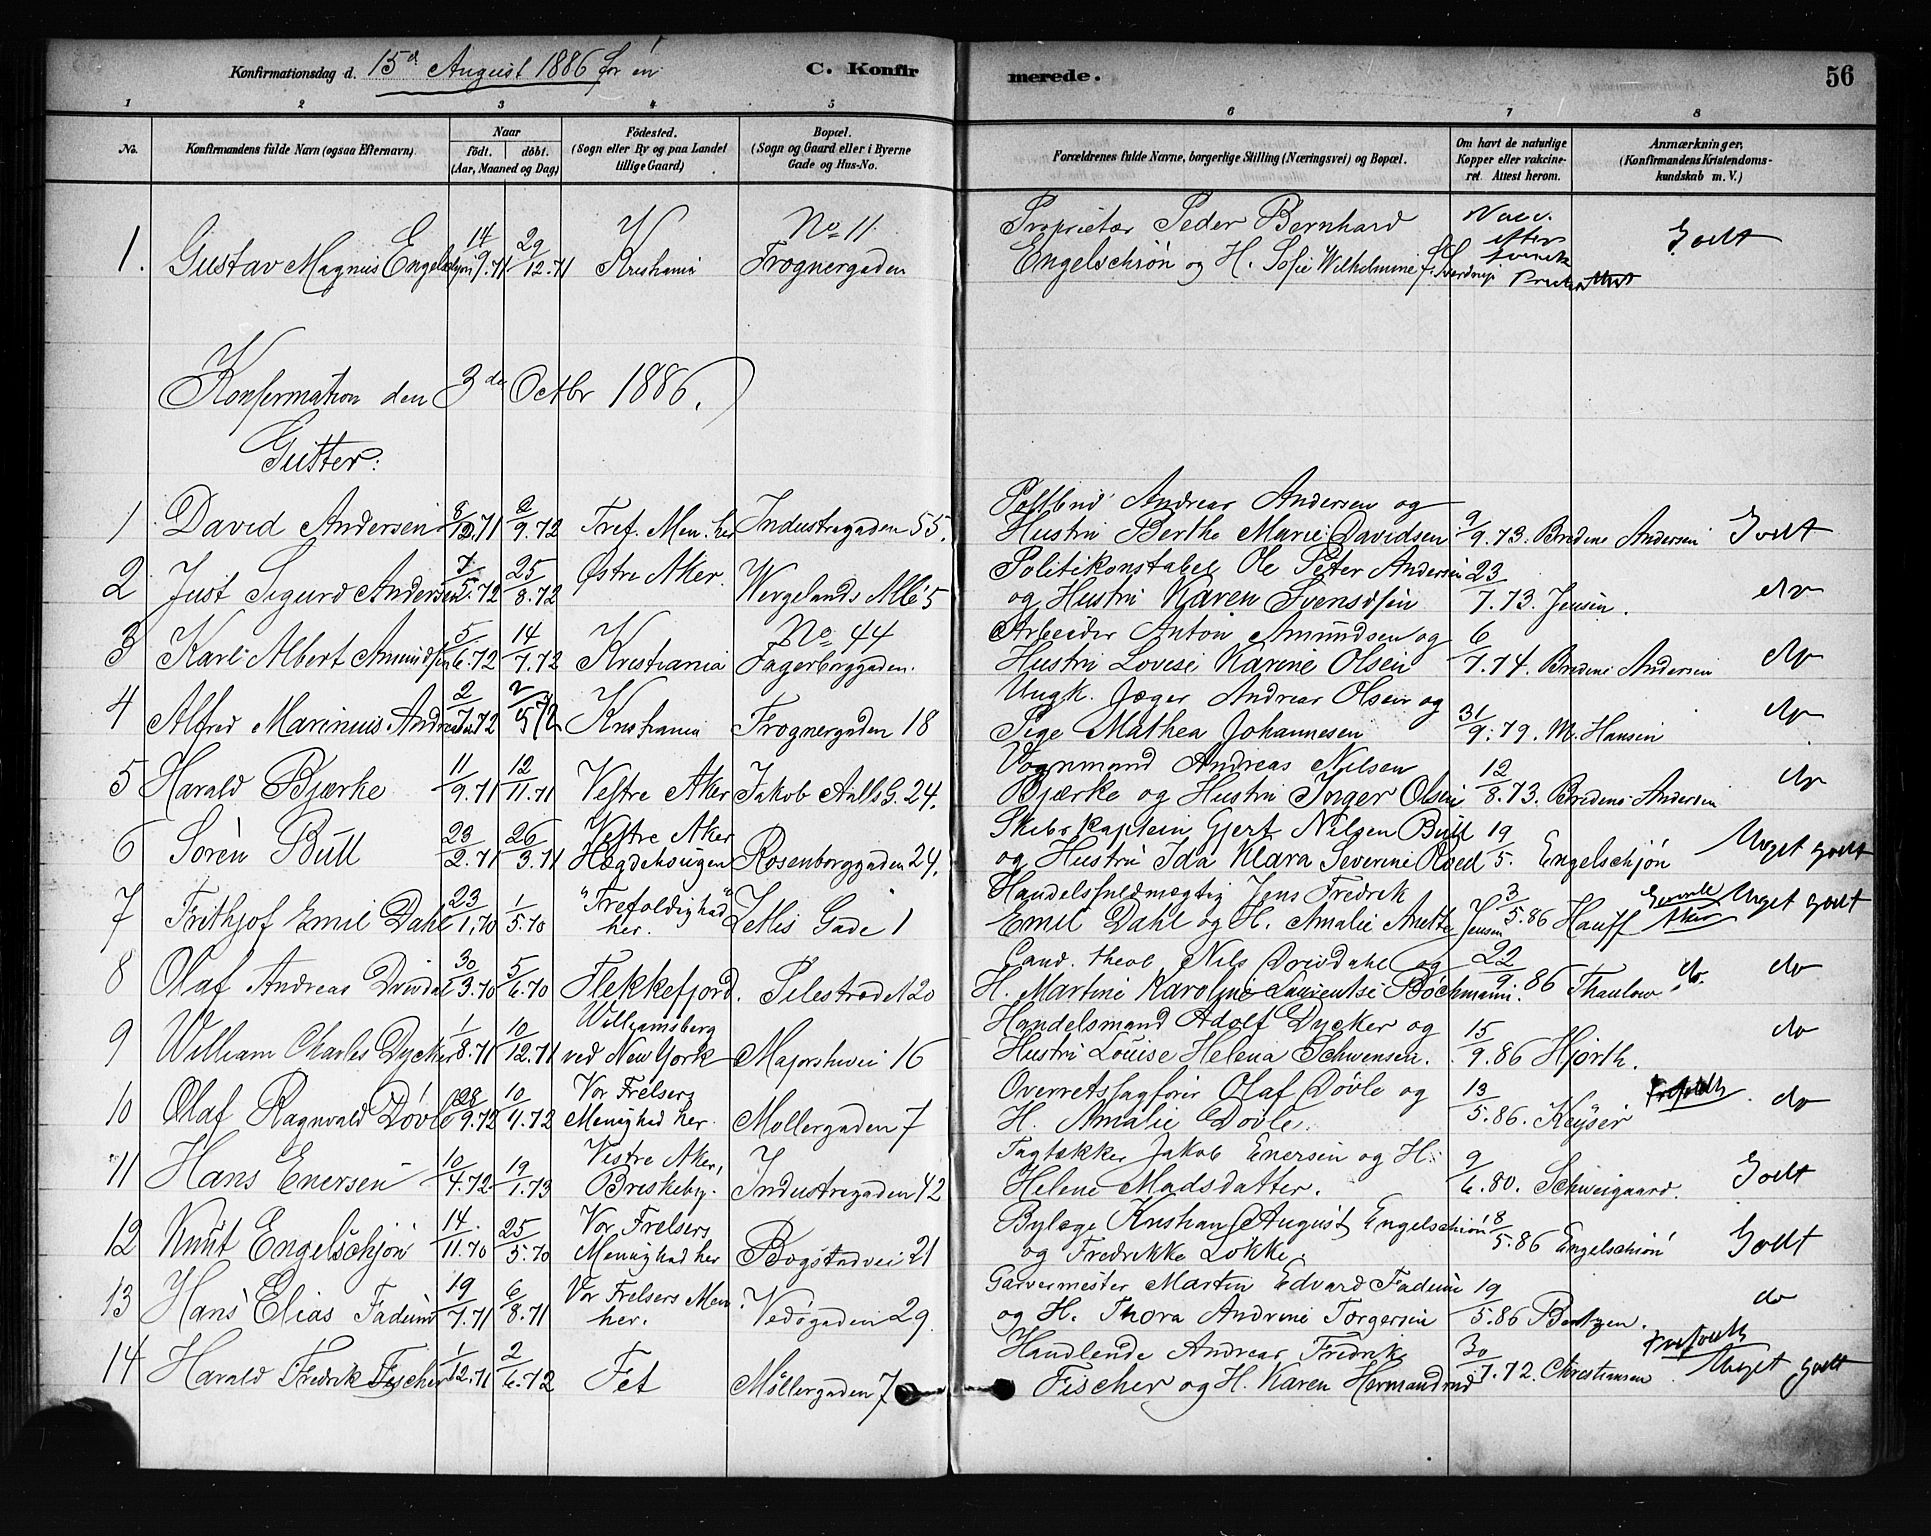 Konfirmationsdag d. 15de August 1886 for én
C. Konfirmerede.
56
1 2 3 4 5 6 7 8
No.
Konfirmandens fulde Navn (ogsaa Efternavn).
Naar
födt. döbt.
(Aar, Maaned og Dag)
Födested.
(Sogn eller By og paa Landet
tillige Gaard)
Bopæl.
(Sogn og Gaard eller i Byerne
Gade og Hus-No.
Forældrenes fulde Navne, borgerlige Stilling (Næringsvei) og Bopæl.
Om havt de naturlige
Kopper eller vakcine-
ret. Attest herom.
Anmærkninger,
(Konfirmandens Kristendoms-
kundskab m. V.)
1. Gustav Magnus Engelschjøn 14/9.71 29/12.71 Kristiania No 11 Frognergaden
Proprietær Peder Bernhard
Engelschiøn og H. Sofie Wilhelmine f. Sverdrup
Vacc. efter svensk Godt
Konfirmation den 3de Octbr 1886.
Gutter:
1 David Andersen 8/12.71 2/9.72 Tref. Men. her Industrigaden 55.
Postbud Andreas Andersen og
Hustru Berthe Marie Davidsen 9/9.73. Bredine Andersen Godt
2 Just Sigurd Andersen 7/5.72 25/8.72 Østre Aker. Wergelands Allé 5
Politikonstabel Ole Peter Andersen
og Hustru Karen Svendsen 23/7.73. Jensen. do
3 Karl Albert Amundsen 5/6.72 14/7.72 Kristiania No 44 Fagerborggaden.
Arbeider Anton Amundsen og
Hustru Lovise Karine Olsen 6/7.74. Bredine Andersen do
4 Alfred Marinius Andreasen 2/7.72 Kristiania Frognergaden 18
Ungk. Jæger Andreas Olsen og
Pige Mathea Johannesen 31/9.79. M. Hansen do
5 Harald Bjærke 11/9.71 12/11.71 Vestre Aker Jakob Aalls G. 24.
Vognmand Andreas Nilsen
Bjærke og Hustru Inger Olsen 12/8.73. Bredine Andersen do
6 Sören Bull 23/2.71 26/3.71 Vestre Aker Hægdehougen Rosenborggaden 24.
Skibskaptein Gjert Nilsen Bull
og Hustru Ida Klara Severine Roed 19/5. Engelschjön Meget godt
7 Frithjof Emil Dahl 23/1.70 1/5.70 "Trefoldighed" her. Zetlis Gade 1
Handelsfuldmægtig Jens Fredrik
Emil Dahl og H. Amalie Anette Jensen 3/5.86 Hauff Gamle Aker Meget godt
8 Olaf Andreas Drivdal 30/3.70 5/6.70 Flekkefjord. Pilestrædet 20
Cand. theol Nils Drivdahl og
H. Martine Karoline Laurentse Böckmann. 22/9.86 Thaulow do. do
9 William Charles Dycker 1/8.71 10/12.71 Williamsberg ved New York Majorstuvei 16
Handelsmand Adolf Dycker og
Hustru Louise Helena Schwensen. 15/9.86 Hjorth. do
10 Olaf Ragnvald Dövle 28/9.72 10/11.72 Vor Frelsers Menighed her. Mollergaden 7
Overretssagfører Olaf Dövle og
H. Amalie Dövle. 13/5.86. Keyser Trefoldh. do
11 Hans Enersen 10/4.72 19/1.73 Vestre Aker, Briskeby. Industrigaden 42
Tagtækker Jakob Enersen og H.
Helene Madsdatter. 9/6.80. Schweigaard. Godt
12 Knut Engelschjön 14/11.70 25/5.70 Vor Frelsers Menighed her Bogstadvei 21
Bylæge Kristian August Engelschiön
og Fredrikke Lökke. 8/5.86 Engelschiön Godt
13 Hans Elias Fadum 19/7.71 6/8.71 Vor Frelsers Men. her. Vedögaden 29
Garvermester Martin Edvard Fadum
og H. Thora Andrine Torgersen 19/5.86 Bentzen. do
14 Harald Fredrik Fischer 1/12.71 2/6.72 Fet Möllergaden 7
Handlende Andreas Fredrik
Fischer og H. Karen Hermandrud 30/7.72. Christiansen Trefoldh Meget godt